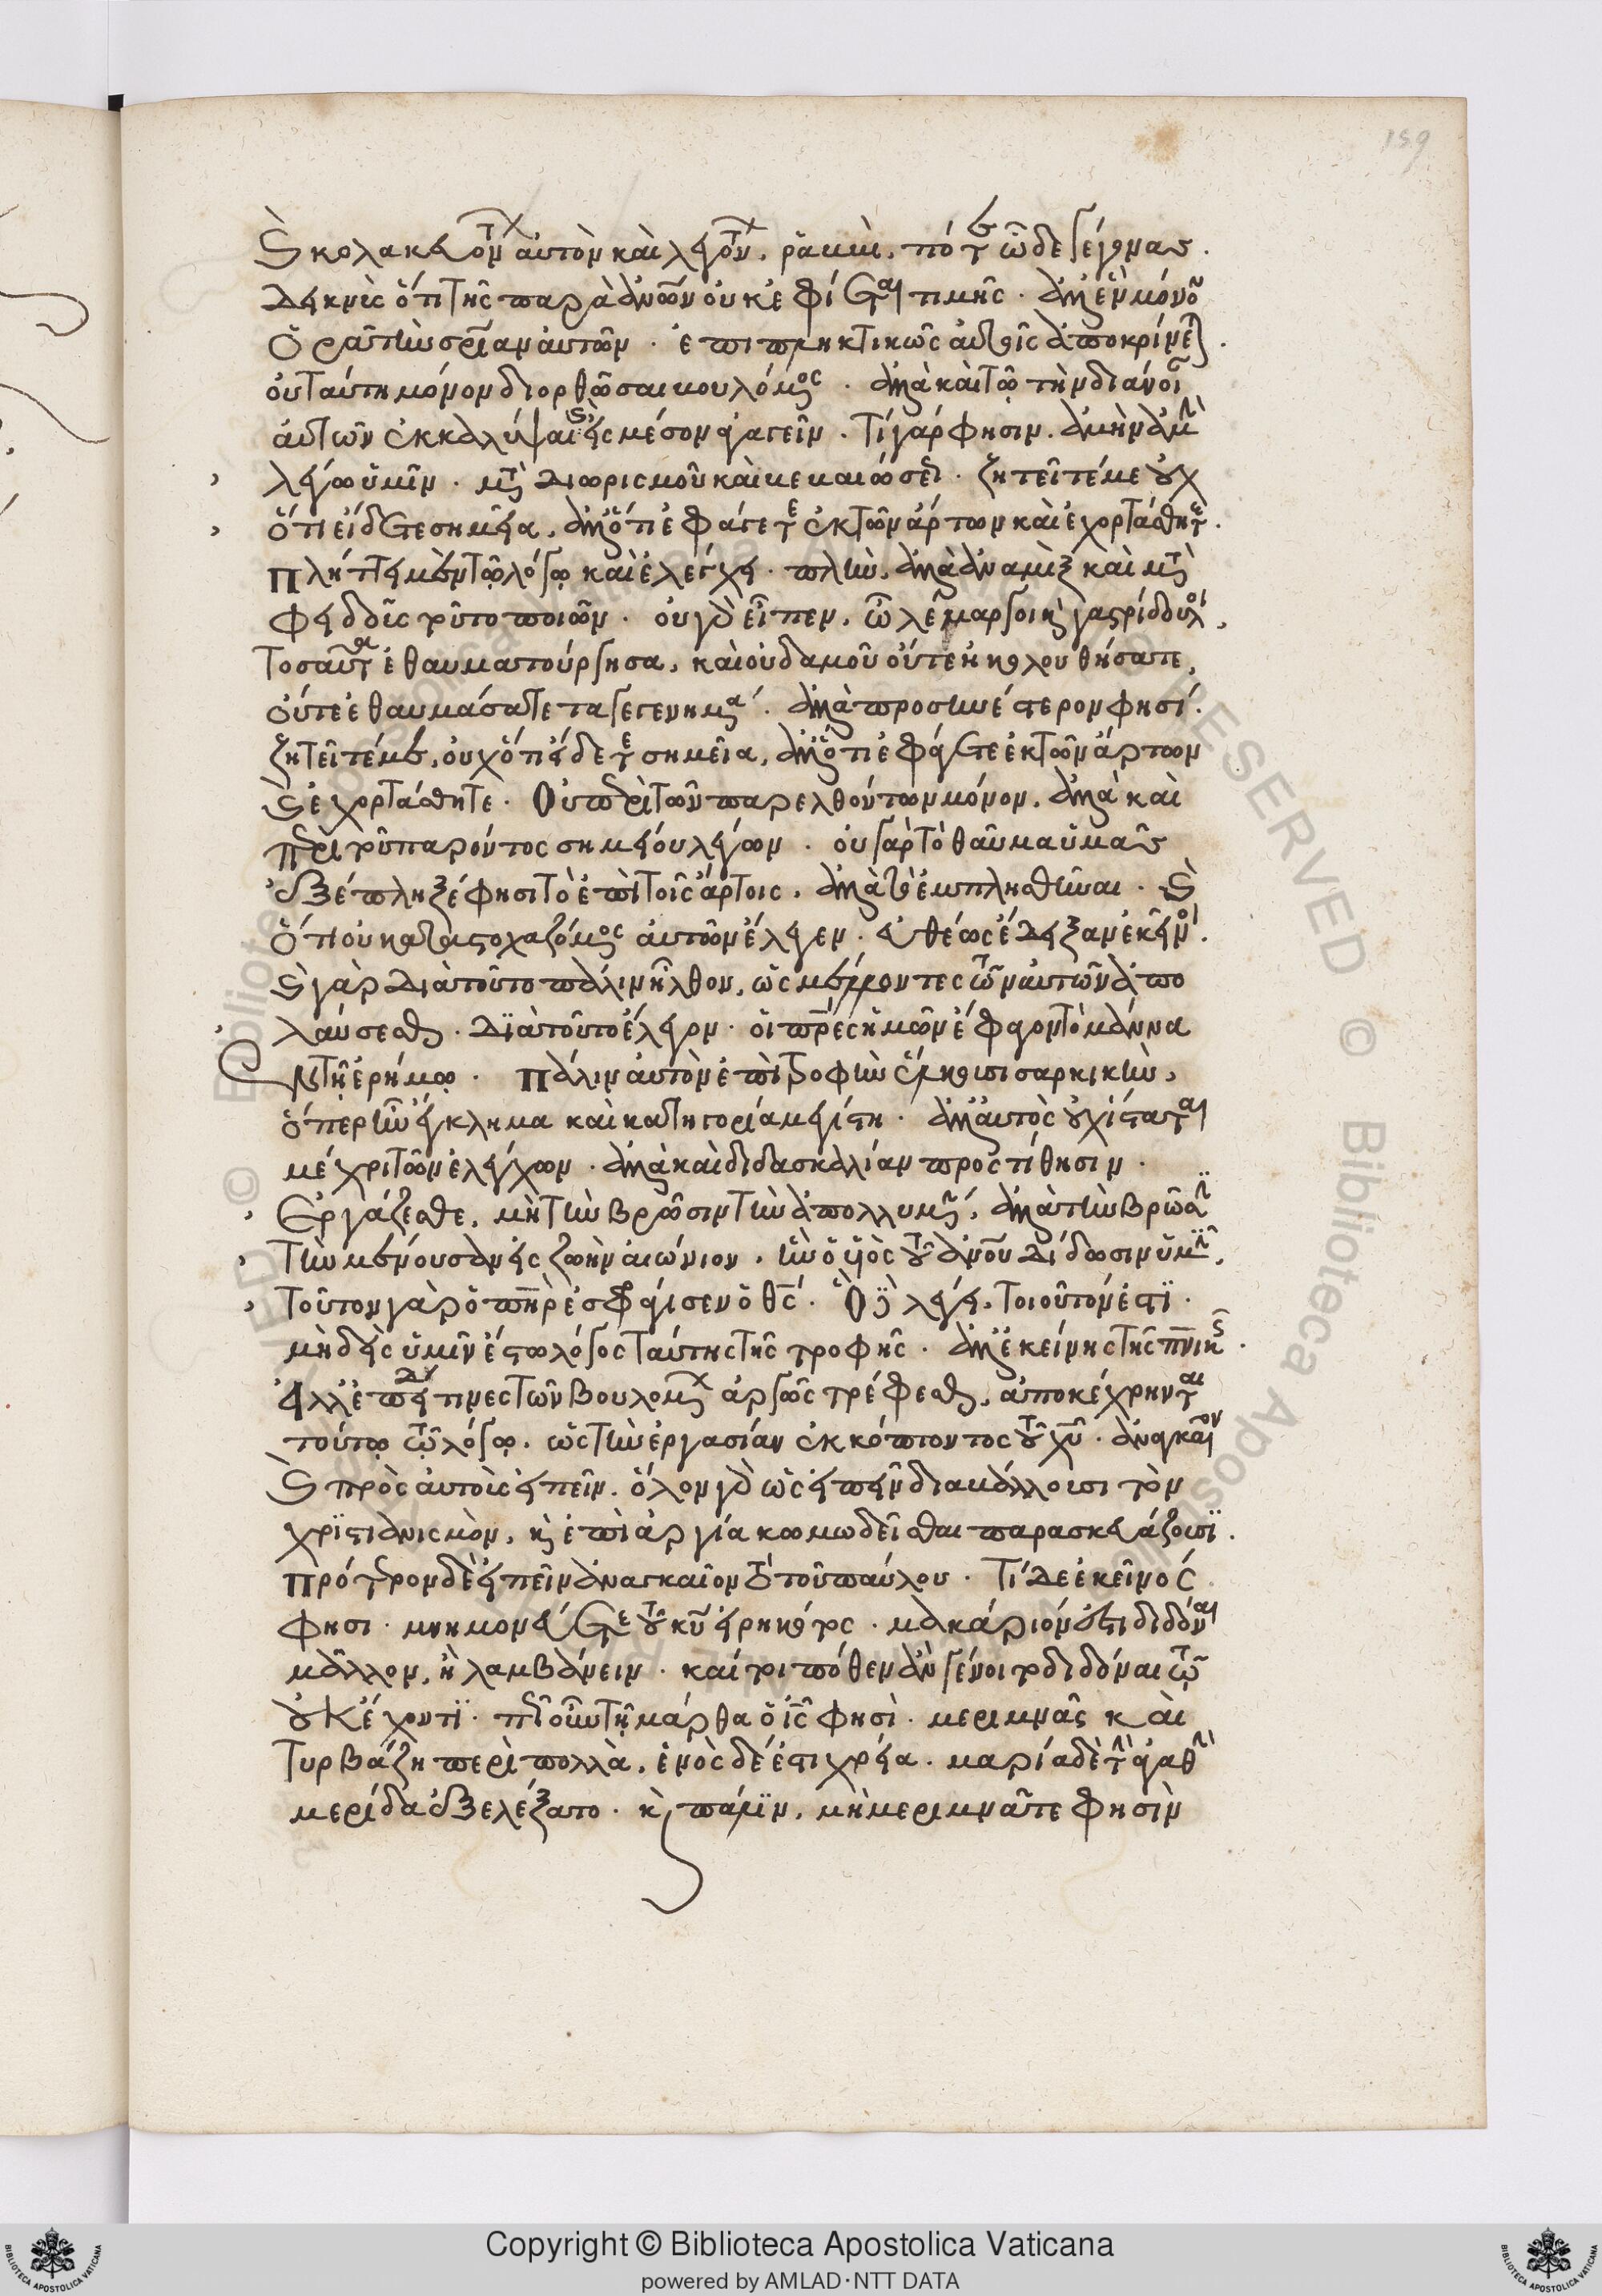 159
καὶ κολακευόντων αὐτὸν καὶ λεγόντων, ῥαββὶ, πότε ὧδε γέγονας.
δεικνὺς ὅτι τῆς παρὰ ἀνθρώπων οὐκ ἐφίεται τιμῆς. ἀλλ' ἓν μόνον
ὁρᾷ τὴν σωτηρίαν αὐτῶν. ἐπιπληκτικῶς αὐτοῖς ἀποκρίνεται.
οὐ ταύτῃ μόνον διορθῶσαι βουλόμενος. ἀλλὰ καὶ τῷ τὴν διάνοιαν
αὐτῶν ἐκκαλύψαι καὶ εἰς μέσον ἀγαγεῖν. τί γάρ φησιν. ἀμὴν ἀμὴν
λέγω ὑμῖν. μετὰ διορισμοῦ καὶ βεβαιώσεως. ζητεῖτέ με οὐχ
ὅτι εἴδετε σημεῖα, ἀλλ' ὅτι ἐφάγετε ἐκ τῶν ἄρτων καὶ ἐχορτάσθητε.
πλήττει μὲν τῷ λόγῳ καὶ ἐλέγχει. πλὴν, ἀλλὰ ἀναμὶξ καὶ μετὰ
φειδοῦς τοῦτο ποιῶν. οὐ γὰρ εἶπεν, ὦ λαίμαργοι καὶ γαστρίδουλοι,
τοσαῦτα ἐθαυματούργησα, καὶ οὐδαμοῦ οὔτε ἠκολουθήσατε,
οὔτε ἐθαυμάσατε τὰ γεγενημένα. ἀλλὰ προσηνέστερον φησί.
ζητεῖτέ με, οὐχ ὅτι εἴδετε σημεῖα, ἀλλ' ὅτι ἐφάγετε ἐκ τῶν ἄρτων
καὶ ἐχορτάσθητε. Οὐ περὶ τῶν παρελθόντων μόνον, ἀλλὰ καὶ
περὶ τοῦ παρόντος σημείου λέγων. οὐ γὰρ τὸ θαῦμα ὑμᾶς
ἐξέπληξέ φησι τὸ ἐπὶ τοῖς ἄρτοις, ἀλλὰ τὸ ἐμπλησθῆναι. καὶ
ὅτι οὐ καταστοχαζόμενος αὐτῶν ἔλεγεν. εὐθέως ἔδειξαν ἐκεῖνοι.
καὶ γὰρ διὰ τοῦτο πάλιν ἦλθον, ὡς μέλλοντες τῶν αὐτῶν ἀπο
λαύσεσθαι. διὰ τοῦτο ἔλεγον. οἱ πατέρες ἡμῶν ἔφαγον τὸ μάννα
ἐν τῇ ἐρήμῳ. πάλιν αὐτὸν ἐπὶ τροφὴν ἕλκουσι σαρκικὴν,
ὅπερ ἦν ἔγκλημα καὶ κατηγορία μεγίστη. ἀλλ' αὐτὸς οὐχ ἵσταται
μέχρι τῶν ἐλέγχων. ἀλλὰ καὶ διδασκαλίαν προστίθησιν.
Ἐργάζεσθε, μὴ τὴν βρῶσιν τὴν ἀπολλυμένην, ἀλλὰ τὴν βρῶσιν
τὴν μένουσαν εἰς ζωὴν αἰώνιον. ἣν ὁ υἱὸς τοῦ ἀνθρώπου δίδωσιν ὑμῖν,
τοῦτον γὰρ ὁ πατὴρ ἐσφράγισεν ὁ θεός. Ὃ δὲ λέγει, τοιοῦτόν ἐστι.
μηδεὶς ὑμῖν ἔστω λόγος ταύτης τῆς τροφῆς. ἀλλ' ἐκείνης τῆς πνευματικῆς.
ἀλλ' ἐπειδή τινες τῶν βουλομένων ἀργῶς τρέφεσθαι, ἀποκέχρηνται
τούτῳ τῷ λόγῳ. ὡς τὴν ἐργασίαν ἐκκόπτοντος τοῦ χριστοῦ. ἀναγκαῖον
καὶ πρὸς αὐτοὺς εἰπεῖν. ὅλον γὰρ ὡς εἰπεῖν διαβάλλουσι τὸν
χριστιανισμὸν, καὶ ἐπὶ ἀργίᾳ κωμωδεῖσθαι παρασκευάζουσι.
πρότερον δὲ εἰπεῖν ἀναγκαῖον τὸ τοῦ παύλου. Τί δὲ ἐκεῖνός
φησι. μνημονεύετε τοῦ κυρίου εἰρηκότος. μακάριόν ἐστι διδόναι
μᾶλλον, ἢ λαμβάνειν. καί τοι πόθεν ἂν γένοιτο διδόναι τῷ
οὐκ ἔχοντι. πῶς οὖν τῇ μάρθα ὁ ἰησοῦς φησὶ. μεριμνᾷς καὶ
τυρβάζῃ περὶ πολλὰ, ἑνὸς δέ ἐστι χρεία. μαρία δὲ τὴν ἀγαθὴν
μερίδα ἐξελέξατο. καὶ πάλιν, μὴ μεριμνᾶτε φησὶν
Copyright © Biblioteca Apostolica Vaticana
powered by AMLAD·NTT DATA